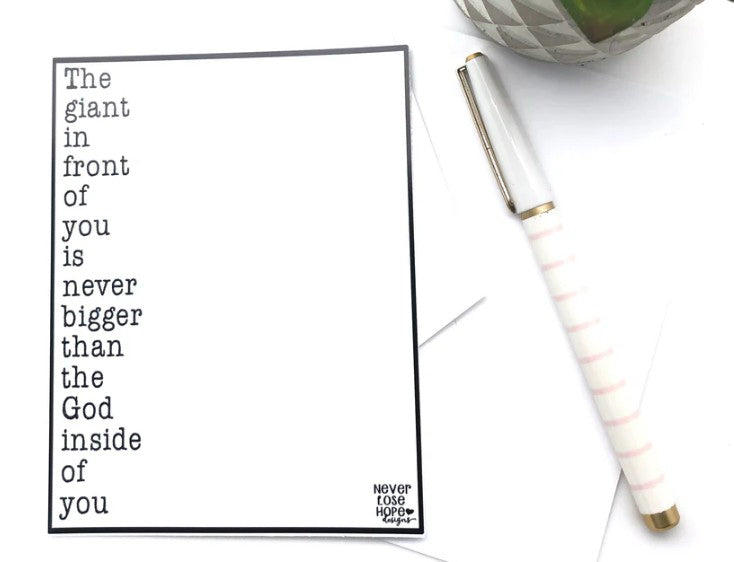 The
giant
in
front
of
you
is
never
bigger
than
the
God
inside
of
you
Never
Lose
Hope
designs